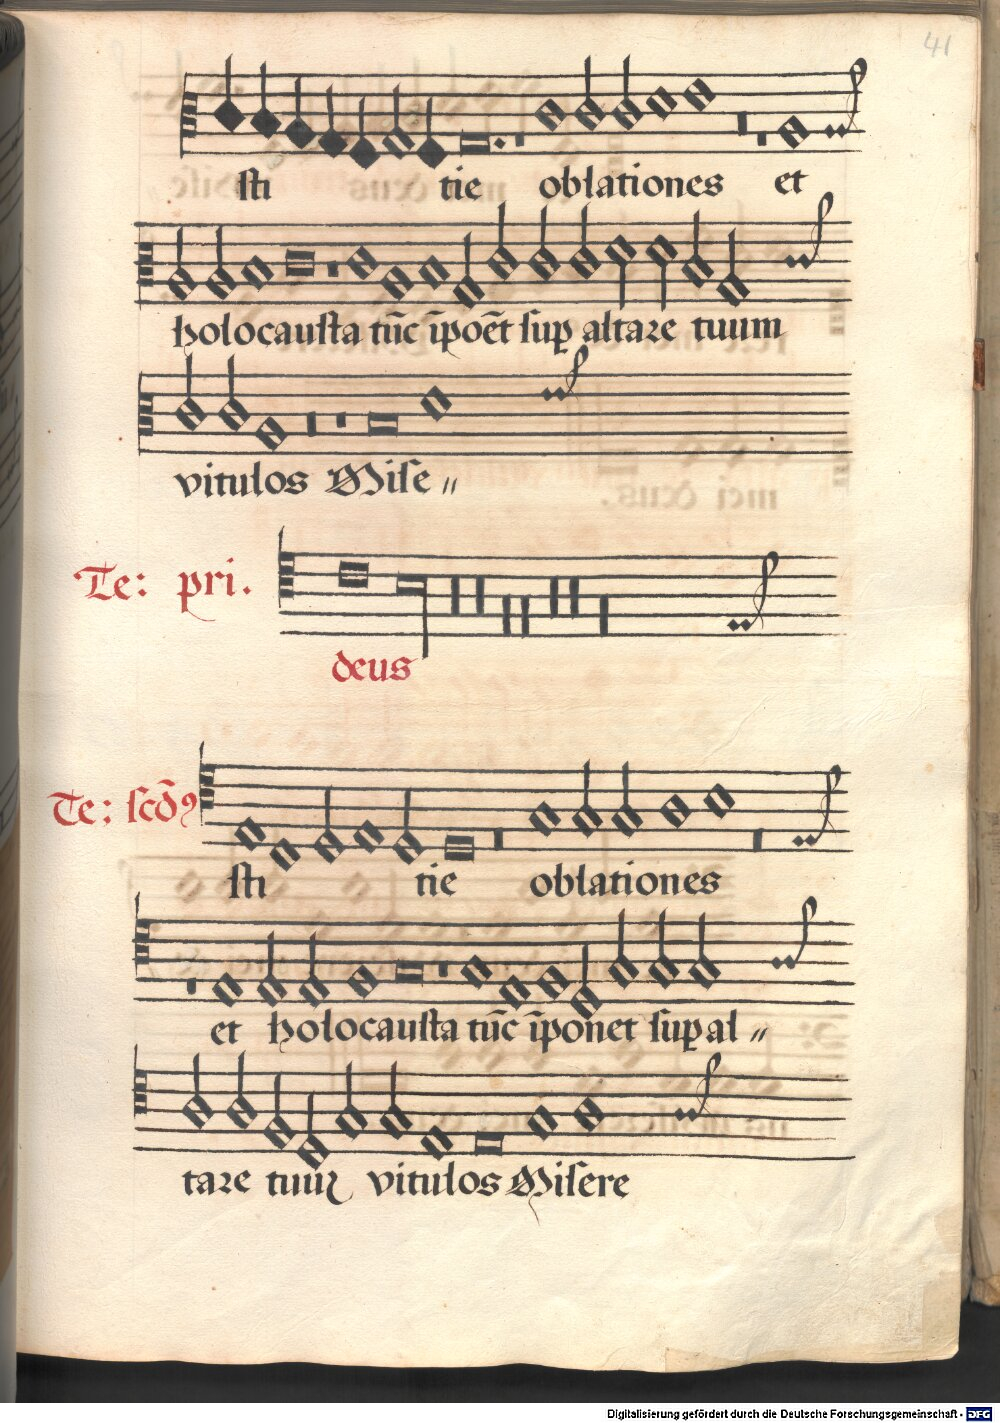 41
sti tie oblationes et
holocausta tūc īpoēt sup altare tuum
vitulos Mise〃
Te: pri.
deus
Te: scd̄ꝰ
sti tie oblationes
et holocausta tūc īponet sup al〃
tare tuuz vitulos Misere
Digitalisierung gefördert durch die Deutsche Forschungsgemeinschaft - DFG